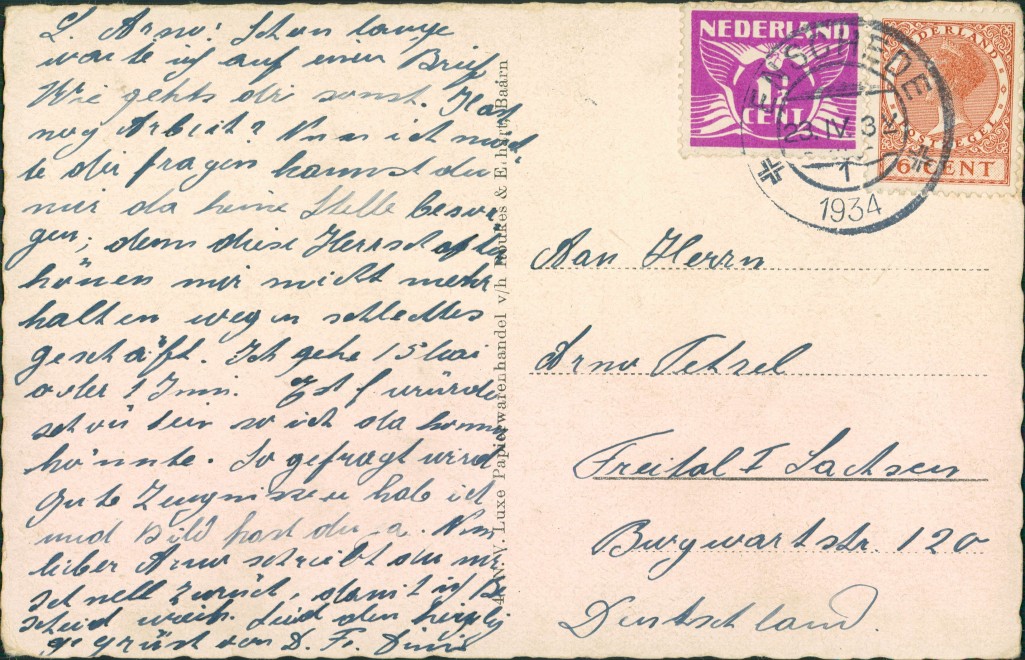 L. Arno! Schon lange
warte ich auf einen Brief
Wie gehts dir sonst. Hast
nog Arbeit? Nun ich möch-
te dir fragen kannst du
mir da keine Stelle besor-
gen, denn diese Herrschaften
können mir nicht mehr
halten wegen schlechtes
geschäft. Ich gehe 15 Mai
oder 1 Juni. Es würde
schön sein so ich da komm
könnte. So gefragt wird
gute Zeugnissen hab ich
und Bild hast du ja. Nun
lieber Arno schreibt du mir
schnell zurück, damit ich Be
scheid weis. Seid den herzlig
gegrüst von D. Fr.
4 N.V. Luxe Papierwarenhandel v/h Roukes & Erhart, Baarn
NEDERLAND
CENT
NEDERLAND
POSTZEGEL
6 CENT
ENSCHEDE
23.IV.34
1
1934
Aan Herrn
Arno Petzel
Freital I Sachsen
Burgwartstr. 120
Deutschland.